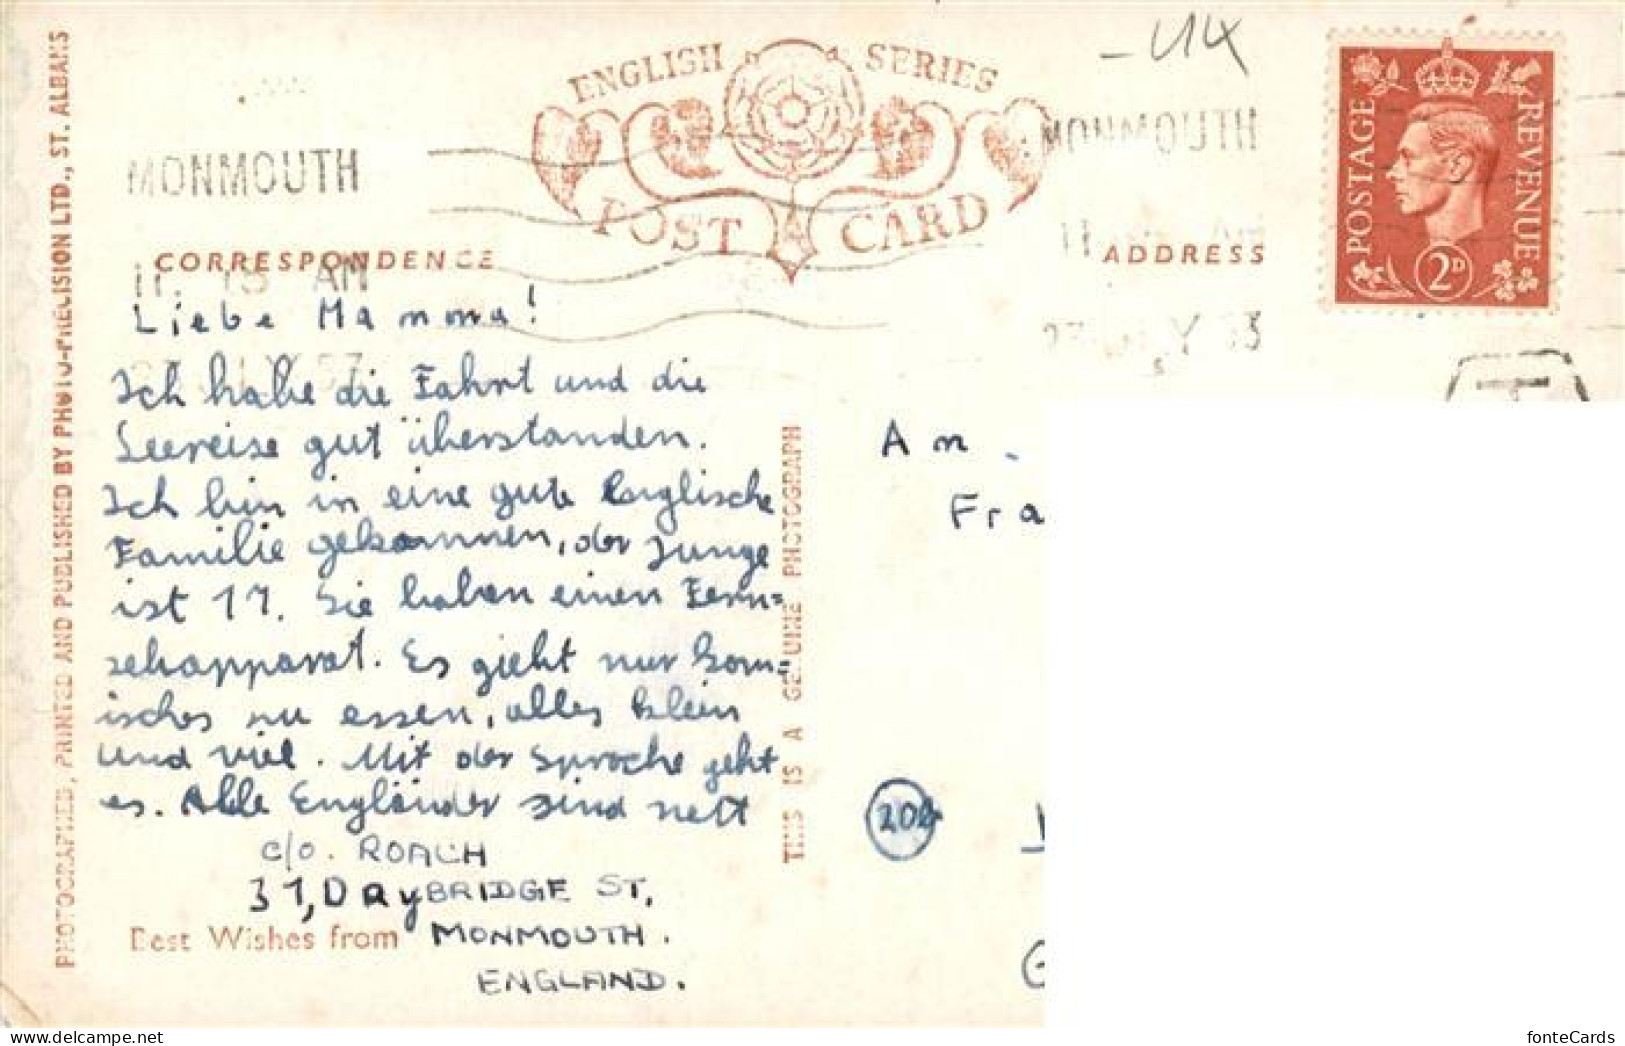 PHOTOGRAPHED, PRINTED AND PUBLISHED BY PHOTO-PRECISION LTD., ST. ALBANS
ENGLISH SERIES
POST CARD
MONMOUTH
MONMOUTH
POSTAGE
REVENUE
2D
CORRESPONDENCE
ADDRESS
11. 15 AM
Liebe Mamma!
Ich habe die Fahrt und die
Seereise gut überstanden.
Ich bin in eine gute Englische
Familie gekommen, der Junge
ist 17. Sie haben einen Fern=
sehapparat. Es gieht nur kom=
isches zu essen, alles klein
und viel. Mit der Sprache geht
es. Alle Engländer sind nett
c/o. ROACH
31, DayBRIDGE ST,
Best Wishes from MONMOUTH.
ENGLAND.
THIS IS A GENUINE PHOTOGRAPH
An
Fra
202
G
fonteCards